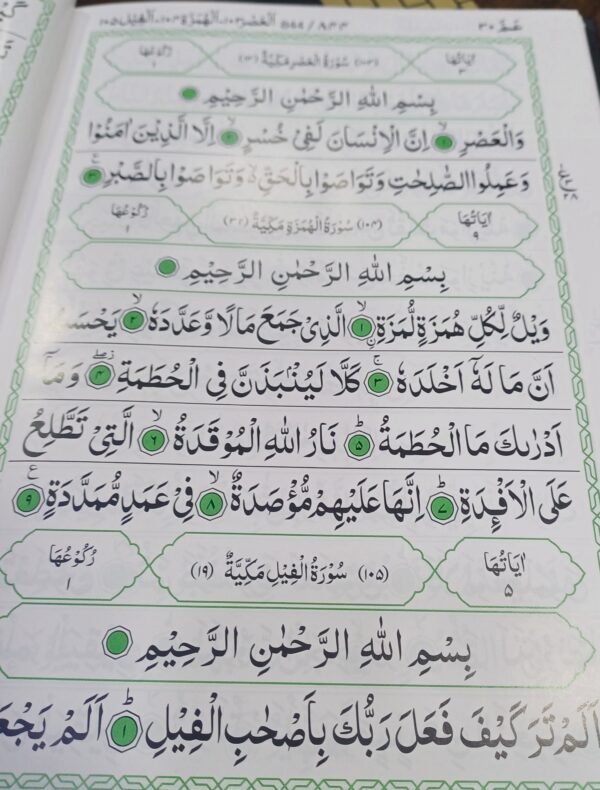 عم ٣٠ ٥٤٤ / ٩٣٣ العصر ١٠٣، الهمزة ١٠٤، الفيل ١٠٥
اٰیَاتُهَا ٣ (١٠٣) سُوْرَةُ الْعَصْرِ مَكِّیَّةٌ (١٣) رُكُوْعُهَا ١
بِسْمِ اللهِ الرَّحْمٰنِ الرَّحِیْمِ
وَالْعَصْرِ ١ اِنَّ الْاِنْسَانَ لَفِیْ خُسْرٍ ٢ اِلَّا الَّذِیْنَ اٰمَنُوْا
وَعَمِلُوا الصّٰلِحٰتِ وَتَوَاصَوْا بِالْحَقِّ ۙ وَتَوَاصَوْا بِالصَّبْرِ ٣ ع
اٰیَاتُهَا ٩ (١٠٤) سُوْرَةُ الْهُمَزَةِ مَكِّیَّةٌ (٣٢) رُكُوْعُهَا ١
بِسْمِ اللهِ الرَّحْمٰنِ الرَّحِیْمِ
وَیْلٌ لِّكُلِّ هُمَزَةٍ لُّمَزَةِ ۙ ١ الَّذِیْ جَمَعَ مَالًا وَّعَدَّدَهٗ ۙ ٢ یَحْسَبُ
اَنَّ مَا لَهٗۤ اَخْلَدَهٗ ۚ ٣ كَلَّا لَیُنْۢبَذَنَّ فِی الْحُطَمَةِ ٤ وَمَاۤ
اَدْرٰىكَ مَا الْحُطَمَةُ ؕ ٥ نَارُ اللهِ الْمُوْقَدَةُ ۙ ٦ الَّتِیْ تَطَّلِعُ
عَلَی الْاَفْـِٕدَةِ ؕ ٧ اِنَّهَا عَلَیْهِمْ مُّؤْصَدَةٌ ۙ ٨ فِیْ عَمَدٍ مُّمَدَّدَةٍ ٩ ع
اٰیَاتُهَا ٥ (١٠٥) سُوْرَةُ الْفِیْلِ مَكِّیَّةٌ (١٩) رُكُوْعُهَا ١
بِسْمِ اللهِ الرَّحْمٰنِ الرَّحِیْمِ
اَلَمْ تَرَ كَیْفَ فَعَلَ رَبُّكَ بِاَصْحٰبِ الْفِیْلِ ؕ ١ اَلَمْ یَجْعَ